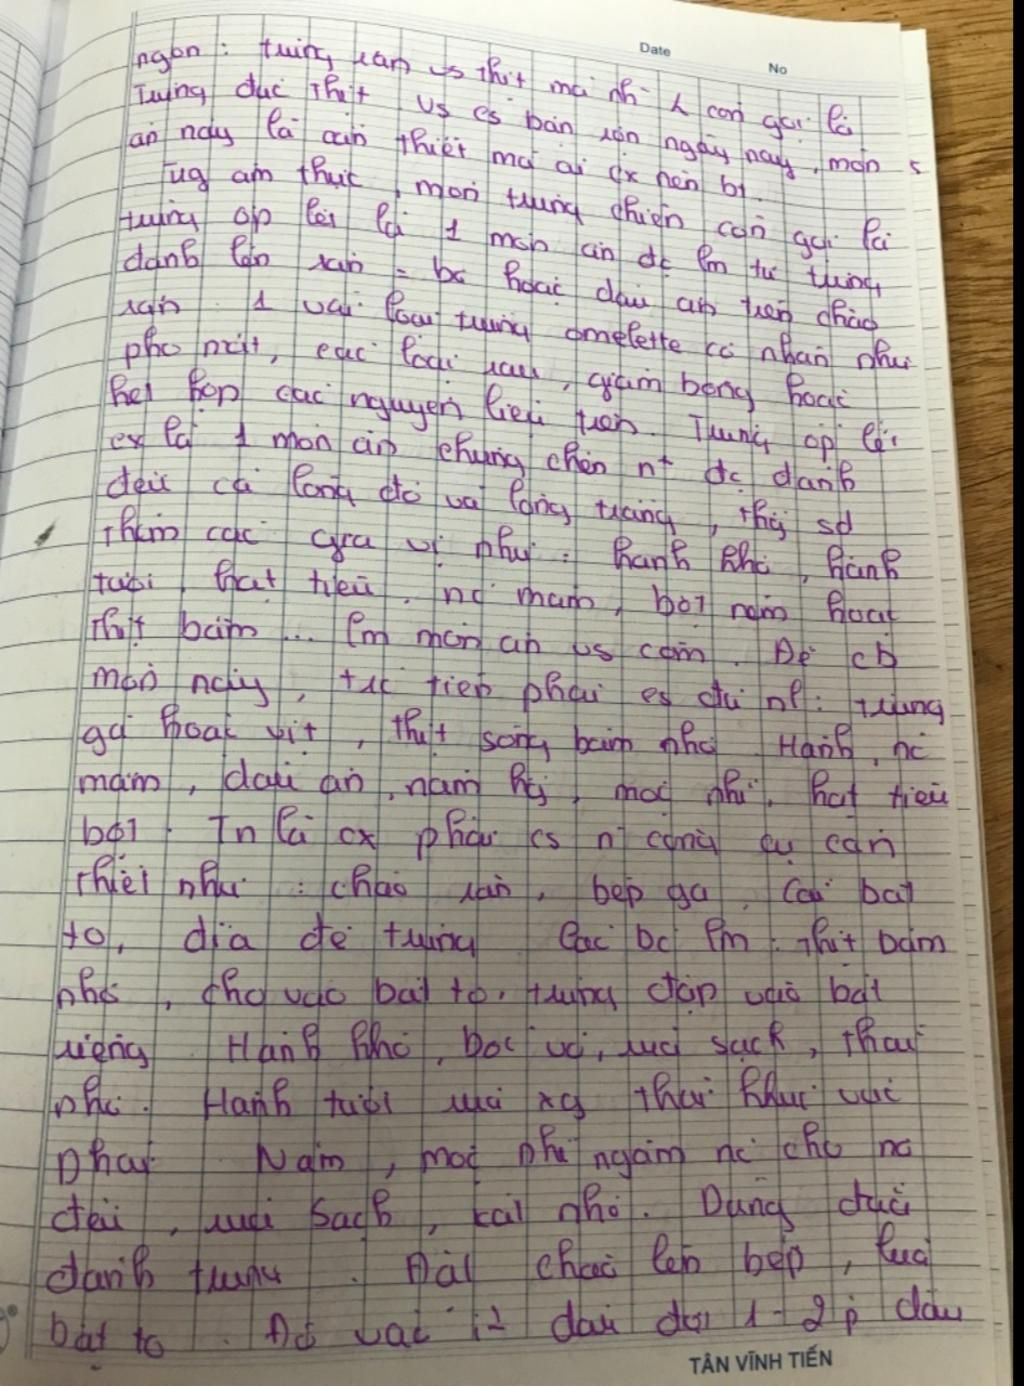 Date
No
ngon : trứng rán vs thịt mà nhĩ k còn gọi là
Trứng đúc thịt vs cs bận rộn ngày nay, món
ăn này là cần thiết mà ai cx nên bt.
Trg ẩm thực, món trứng chiên còn gọi là
trứng ốp lết là 1 món ăn đc lm từ trứng
đánh lên rán = bơ hoặc dầu ăn trên chảo
rán. 1 vài loại trứng omelette có nhân như
pho mát, các loại rau, giăm bông hoặc
kết hợp các nguyên liệu trên. Trứng ốp lết
cx là 1 món ăn chưng chên nt đc đánh
đều cả lòng đỏ và lòng trắng, sd
thêm các gia vị như : hành khô, hành
tươi, hạt tiêu, nc mắm, bột nêm hoặc
thịt băm... lm món ăn vs cơm. Để cb
món này, trc tiên phải cs đủ nl : trứng
gà hoặc vịt, thịt sống băm nhỏ. Hành, nc
mắm, dầu ăn, nấm hg, mộc nhĩ, hạt tiêu
bột. Tn là cx phải cs n công cụ cần
thiết như : chảo rán, bếp ga, cái bát
to, đĩa để trứng. Các bc lm : thịt băm
nhỏ, cho vào bát to, trứng đập vào bát
riêng. Hành khô, bóc vỏ, rửa sạch, thái
nhỏ. Hành tươi rửa xg thái khúc
Nấm, mộc nhĩ ngâm nc cho nở
đều, rửa sạch, cắt nhỏ. Dùng đũa
đánh trứng. Đặt chảo lên bếp, lửa
bật to. Đổ vào ít dầu đợi 1-2p dầu
TÂN VĨNH TIẾN